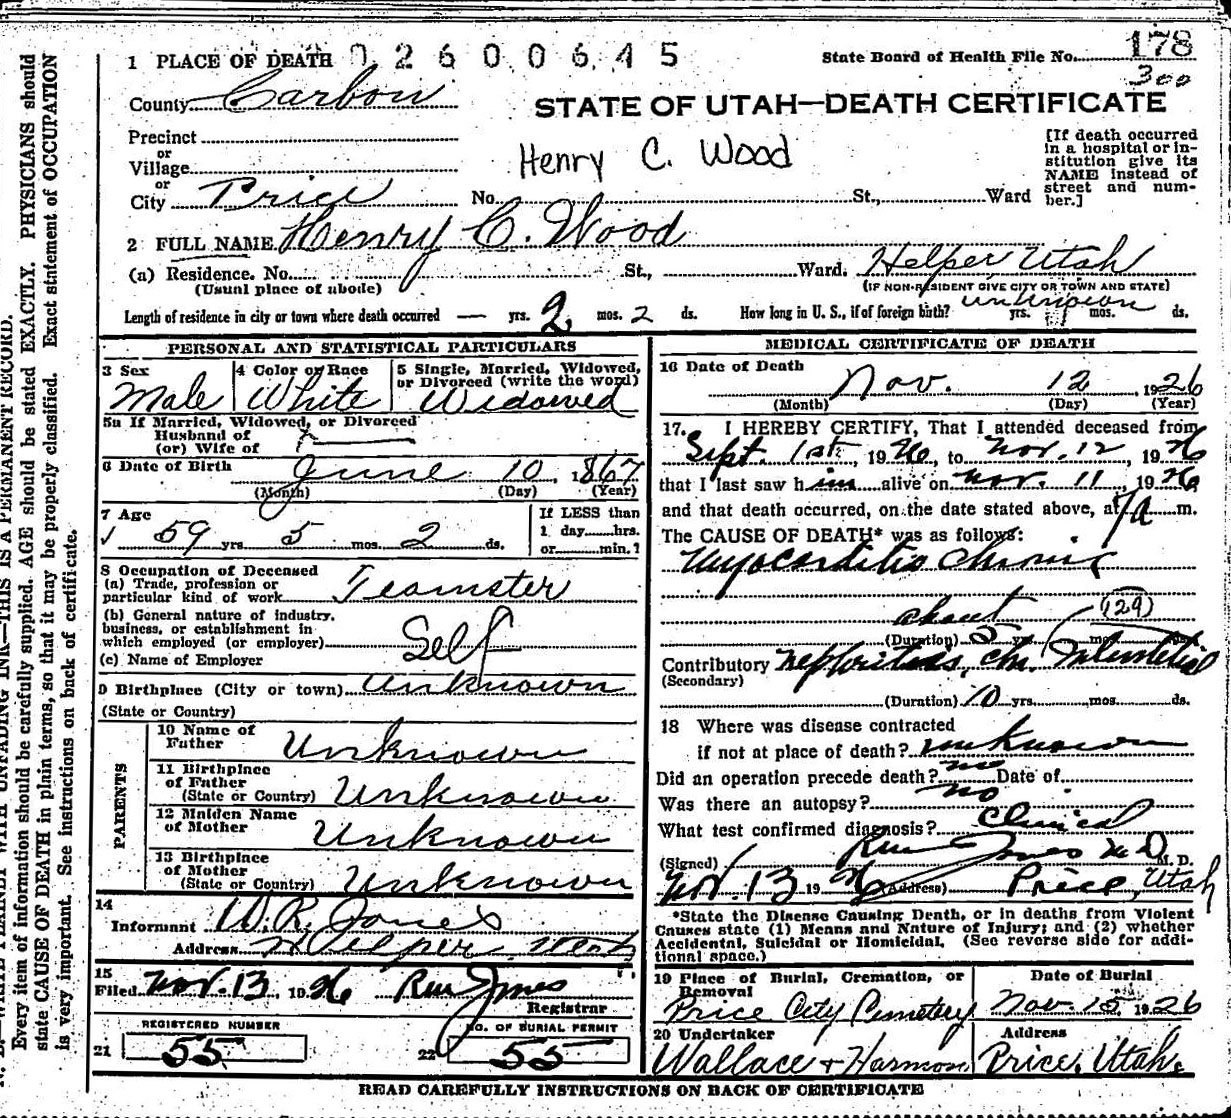 1 PLACE OF DEATH 02600645 State Board of Health File No. 178
300
County Carbon STATE OF UTAH—DEATH CERTIFICATE
Precinct
or
Village
or
City Price No. St., Ward
Henry C. Wood
[If death occurred in a hospital or institution give its NAME instead of street and number.]
2 FULL NAME Henry C. Wood
(a) Residence. No. St., Ward. Helper Utah
(Usual place of abode) (IF NON-RESIDENT GIVE CITY OR TOWN AND STATE)
Length of residence in city or town where death occurred — yrs. 2 mos. 2 ds. How long in U. S., if of foreign birth? unknown yrs. mos. ds.
PERSONAL AND STATISTICAL PARTICULARS
3 Sex
Male
4 Color or Race
White
5 Single, Married, Widowed, or Divorced (write the word)
Widowed
5a If Married, Widowed, or Divorced
Husband of
(or) Wife of
6 Date of Birth June 10, 1867
(Month) (Day) (Year)
7 Age
59 yrs 5 mos. 2 ds.
If LESS than
1 day hrs.
or min.?
8 Occupation of Deceased
(a) Trade, profession or
particular kind of work Teamster
(b) General nature of industry,
business, or establishment in
which employed (or employer) Self
(c) Name of Employer
9 Birthplace (City or town) Unknown
(State or Country)
PARENTS
10 Name of
Father Unknown
11 Birthplace
of Father
(State or Country) Unknown
12 Maiden Name
of Mother Unknown
13 Birthplace
of Mother
(State or Country) Unknown
14
Informant W. R. Jones
Address Helper, Utah
15
Filed Nov. 13, 1926
Registrar
REGISTERED NUMBER
21 55
NO. OF BURIAL PERMIT
22 55
MEDICAL CERTIFICATE OF DEATH
16 Date of Death Nov. 12, 1926
(Month) (Day) (Year)
17. I HEREBY CERTIFY, That I attended deceased from
Sept. 1st, 1926, to Nov. 12, 1926
that I last saw him alive on Nov. 11, 1926
and that death occurred, on the date stated above, at 7 a m.
The CAUSE OF DEATH* was as follows:
Myocarditis chronic
about (129)
(Duration) 5 yrs. mos. ds.
Contributory Nephritis, chr. Interstitial
(Secondary)
(Duration) 10 yrs. mos. ds.
18 Where was disease contracted
if not at place of death? unknown
Did an operation precede death? no Date of
Was there an autopsy? no
What test confirmed diagnosis? Clinical
(Signed) Jones M D M. D.
Nov. 13 1926 (Address) Price, Utah
*State the Disease Causing Death, or in deaths from Violent
Causes state (1) Means and Nature of Injury; and (2) whether
Accidental, Suicidal or Homicidal. (See reverse side for addi-
tional space.)
19 Place of Burial, Cremation, or
Removal
Price City Cemetery
Date of Burial
Nov. 15, 1926
20 Undertaker
Wallace & Harmon
Address
Price, Utah.
READ CAREFULLY INSTRUCTIONS ON BACK OF CERTIFICATE
N. B.—WRITE PLAINLY WITH UNFADING INK—THIS IS A PERMANENT RECORD.
Every item of information should be carefully supplied. AGE should be stated EXACTLY. PHYSICIANS should
state CAUSE OF DEATH in plain terms, so that it may be properly classified. Exact statement of OCCUPATION
is very important. See instructions on back of certificate.